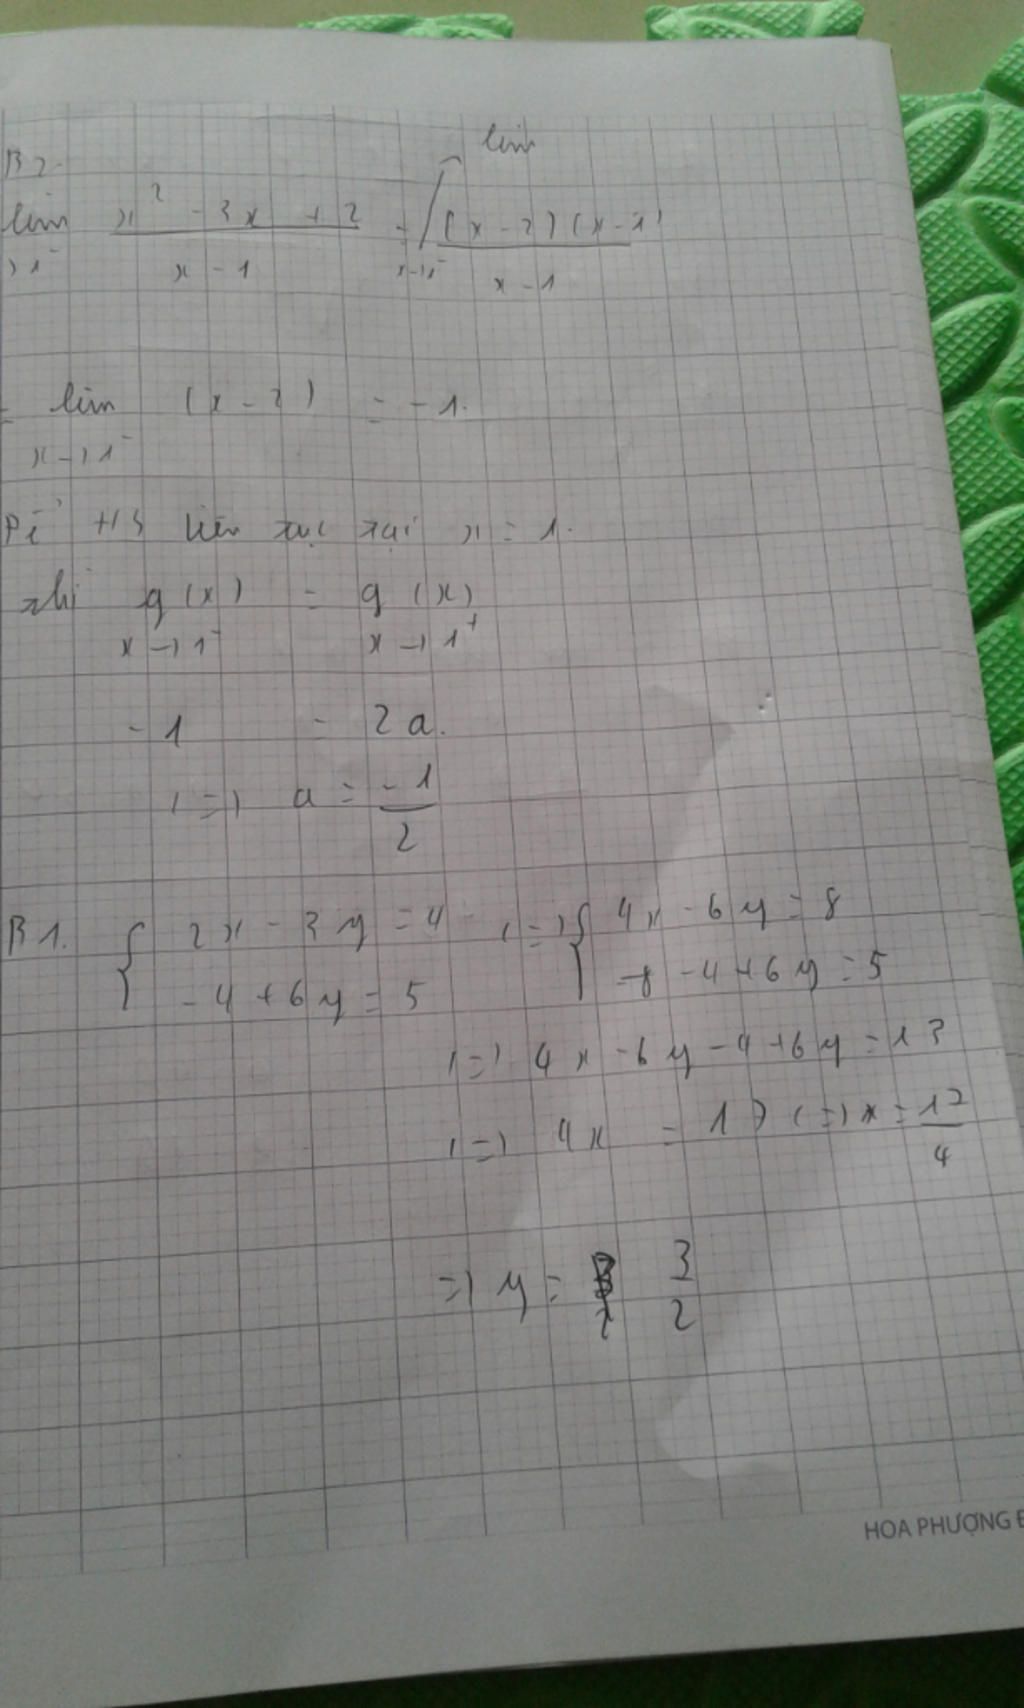 B2
lim x² - 3x + 2 / x - 1 = lim (x - 2)(x - 1) / x - 1
→1⁻ x→1⁻
= lim (x - 2) = -1.
x→1⁻
Để H/S liên tục tại x = 1.
thì g(x) = g(x)
x→1⁻ x→1⁺
-1 = 2a.
<=> a = -1/2
B1. { 2x - 3y = 4 <=> { 4x - 6y = 8
-4 + 6y = 5 -4 + 6y = 5
<=> 4x - 6y - 4 + 6y = 13
<=> 4x = 17 <=> x = 17/4
=> y = 3/2
HOA PHƯỢNG